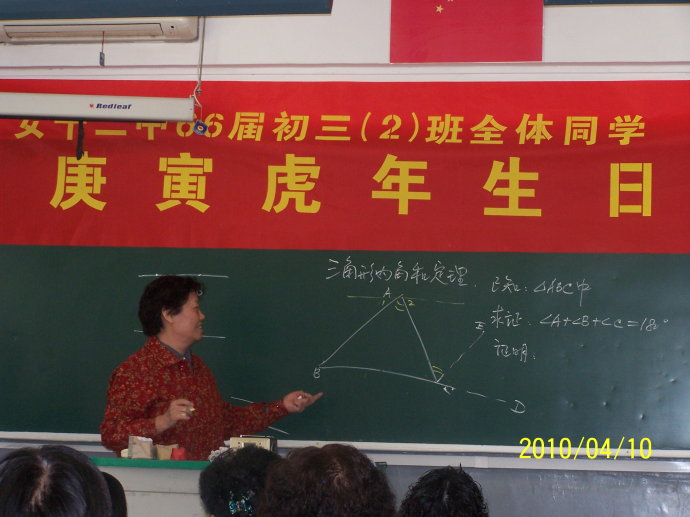 Redleaf
女十二中66届初三(2)班全体同学
庚寅虎年生日
三角形内角和定理.
已知:△ABC中
求证:∠A+∠B+∠C=180°
证明:
A
1 2
E
B
C
D
2010/04/10